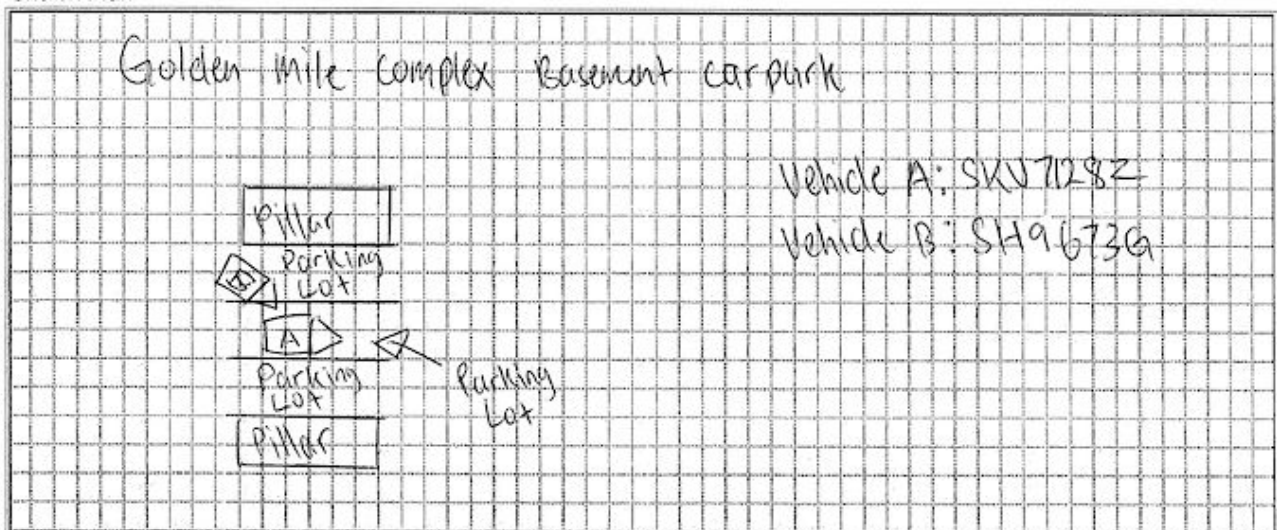 Golden mile complex Basement carpark
Vehicle A: SKV7128Z
Vehicle B: SH9673G
Pillar
Parking
Lot
B
A
Parking
Lot
Parking
Lot
Pillar